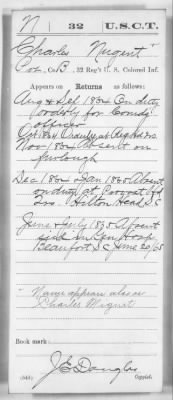 N 32 U.S.C.T.
Charles Nugent
Co. B, 32 Reg't U. S. Colored Inf.
Appears on Returns as follows:
Aug & Sept 1864 On duty
orderly for Comdg
officer
Oct 1864 Orderly at Regt Hdqrs
Nov 1864 Absent on
furlough
Dec 1864 & Jan 1865 Absent
on duty at Provost
Hilton Head SC
June & July 1865 Absent
sick in Gen Hosp
Beaufort SC June 20/65
Name appears also as
Charles Mignat
Book mark:
J E Douglas
(543) Copyist.